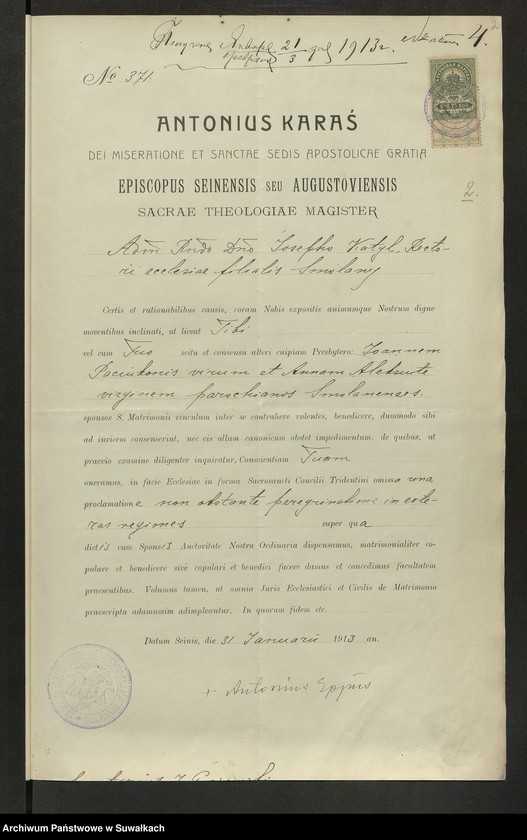 21/3 1913 4.
№ 371.
ANTONIUS KARAŚ
DEI MISERATIONE ET SANCTAE SEDIS APOSTOLICAE GRATIA
EPISCOPUS SEINENSIS SEU AUGUSTOVIENSIS
2.
SACRAE THEOLOGIAE MAGISTER
Adm Rndo Dno Josepho Katyl, Recto-
rii ecclesiae filialis Smolany
Certis et rationabilibus causis, coram Nobis expositis animumque Nostrum digne
moventibus inclinati, ut liceat Tibi
vel cum Tuo scitu et consensu alteri cuipiam Presbytero: Joannem
Paciukonis virum et Annam Aleksute
virginem parochianos Smolanenses.
sponsos S. Matrimonii vinculum inter se contrahere volentes, benedicere, dummodo sibi
ad invicem consenserint, nec eis ullum canonicum obstet impedimentum, de quibus, ut
praevio examine diligenter inquiratur, Conscientiam Tuam
oneramus, in facie Ecclesiae in forma Sacrosancti Concilii Tridentini omissa una
proclamatione non obstante peregrinatione in exte-
ras regiones super qua
dictis cum Sponsis Auctoritate Nostra Ordinaria dispensamus, matrimonialiter co-
pulare et benedicere sive copulari et benedici facere damus et concedimus facultatem
praesentibus. Volumus tamen, ut omnia Juris Ecclesiastici et Civilis de Matrimonio
praescripta adamussim adimpleantur. In quorum fidem etc.
Datum Seinis, die 31 Januarii 1913 an.
+ Antonius Eppus
Archiwum Państwowe w Suwałkach